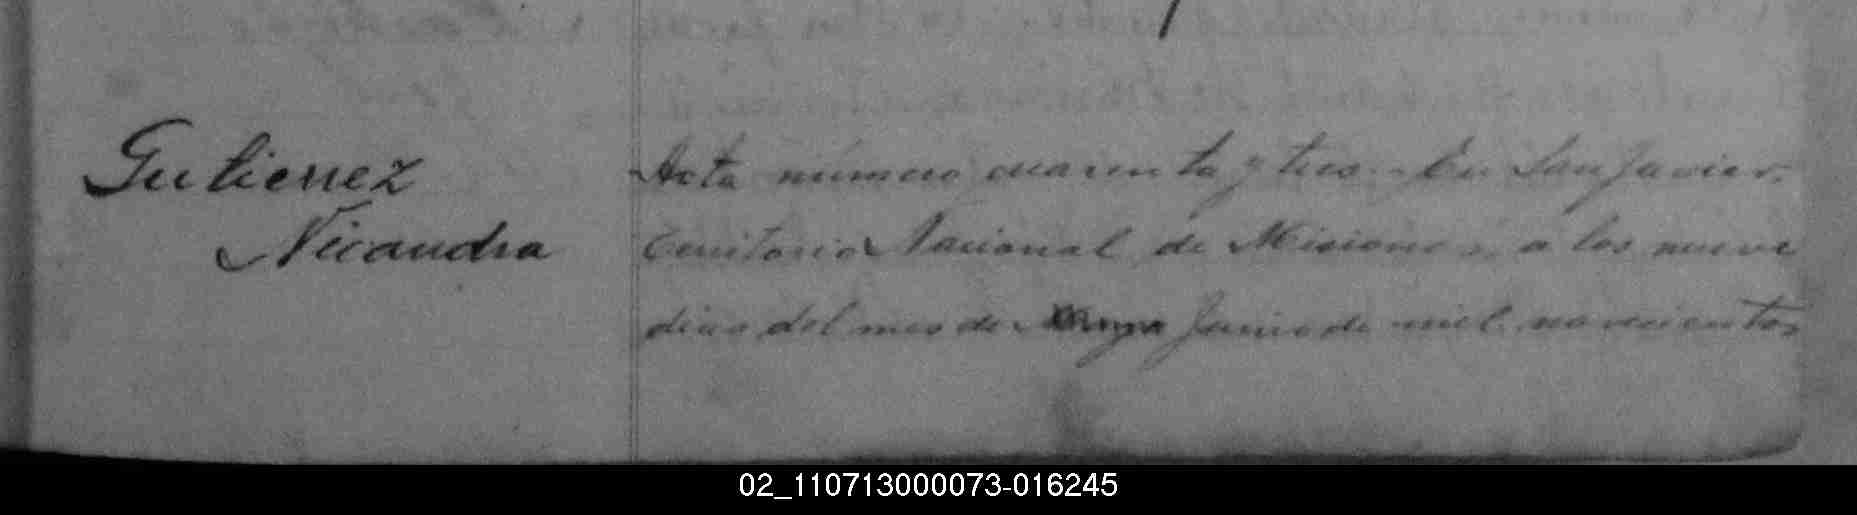 Gutierrez
Nicandra
Acta número cuarenta y tres. En San Javier,
Territorio Nacional de Misiones, a los nueve
dias del mes de Mayo Junio de mil novecientos
02_110713000073-016245